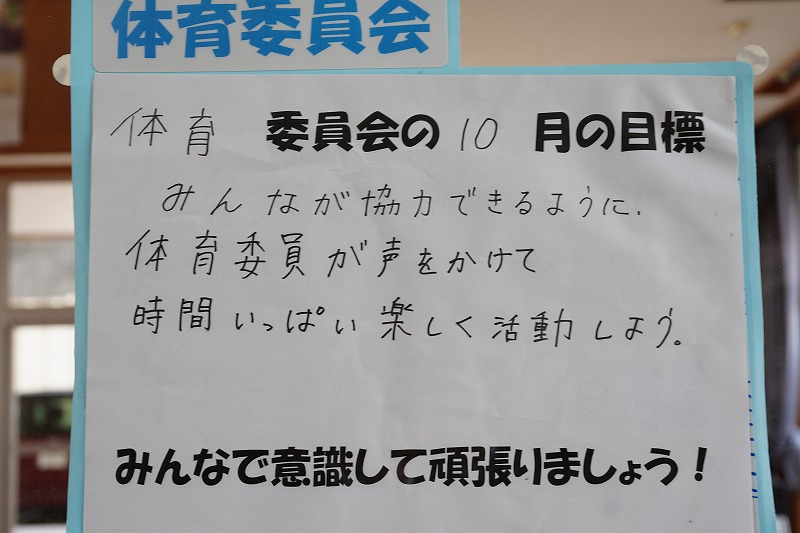 体育委員会
体育 委員会の 10 月の目標
みんなが協力できるように、
体育委員が声をかけて
時間いっぱい楽しく活動しよう。
みんなで意識して頑張りましょう！